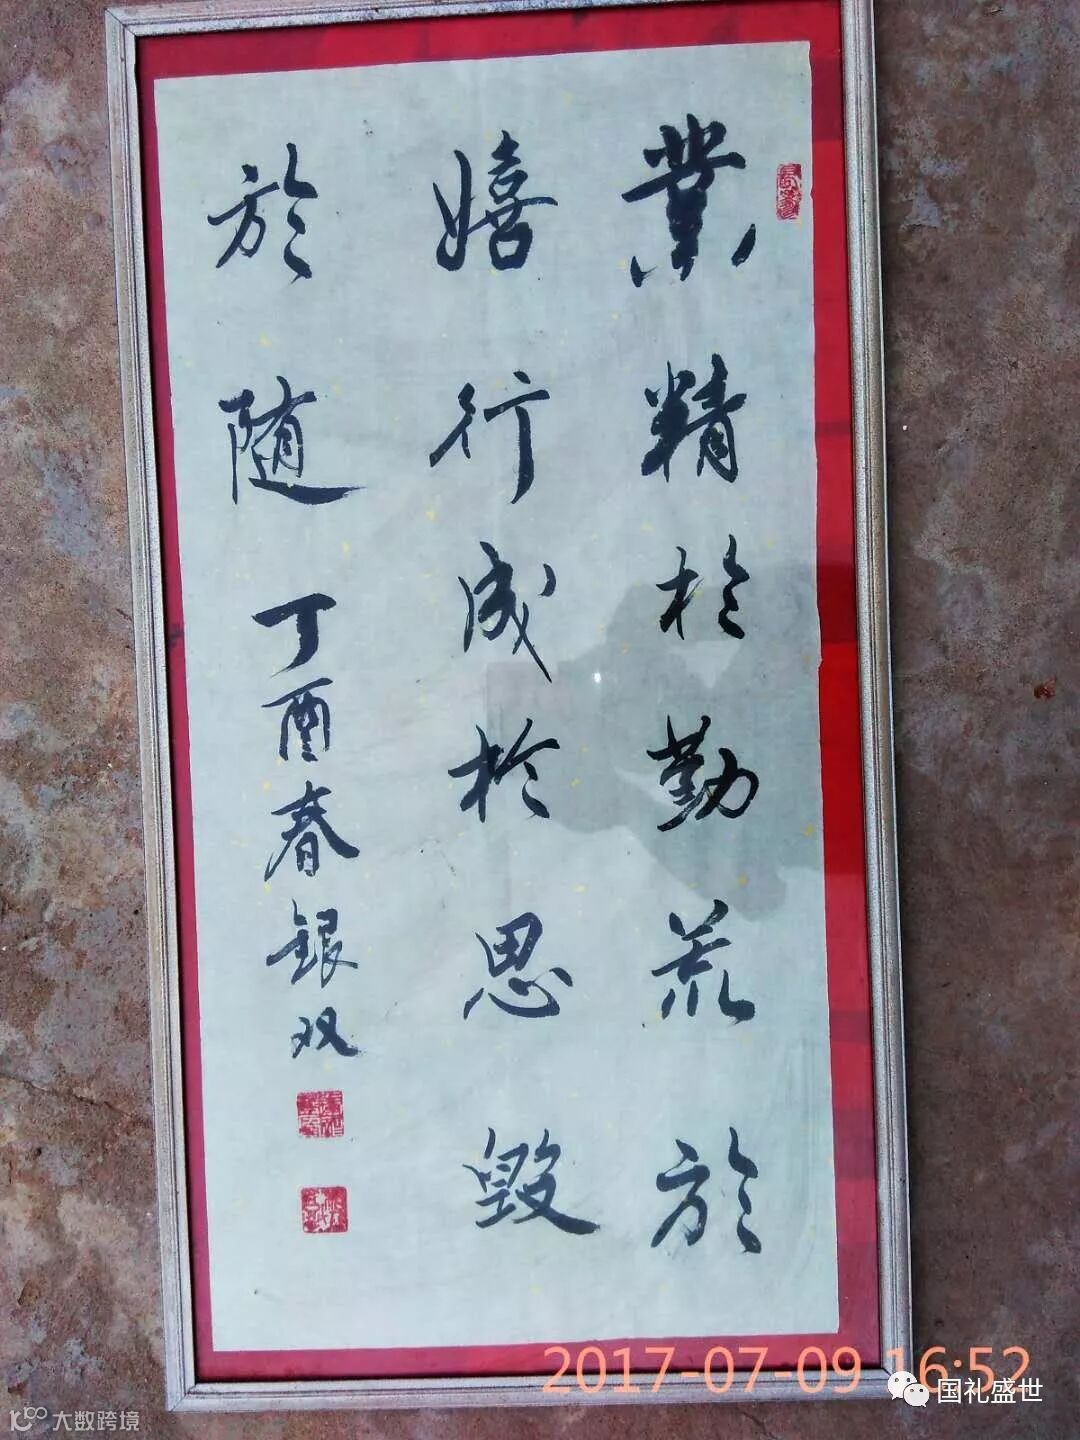 業精於勤荒於
嬉行成於思毀
於随
丁酉春银双
2017-07-09 16:52
国礼盛世
大数跨境